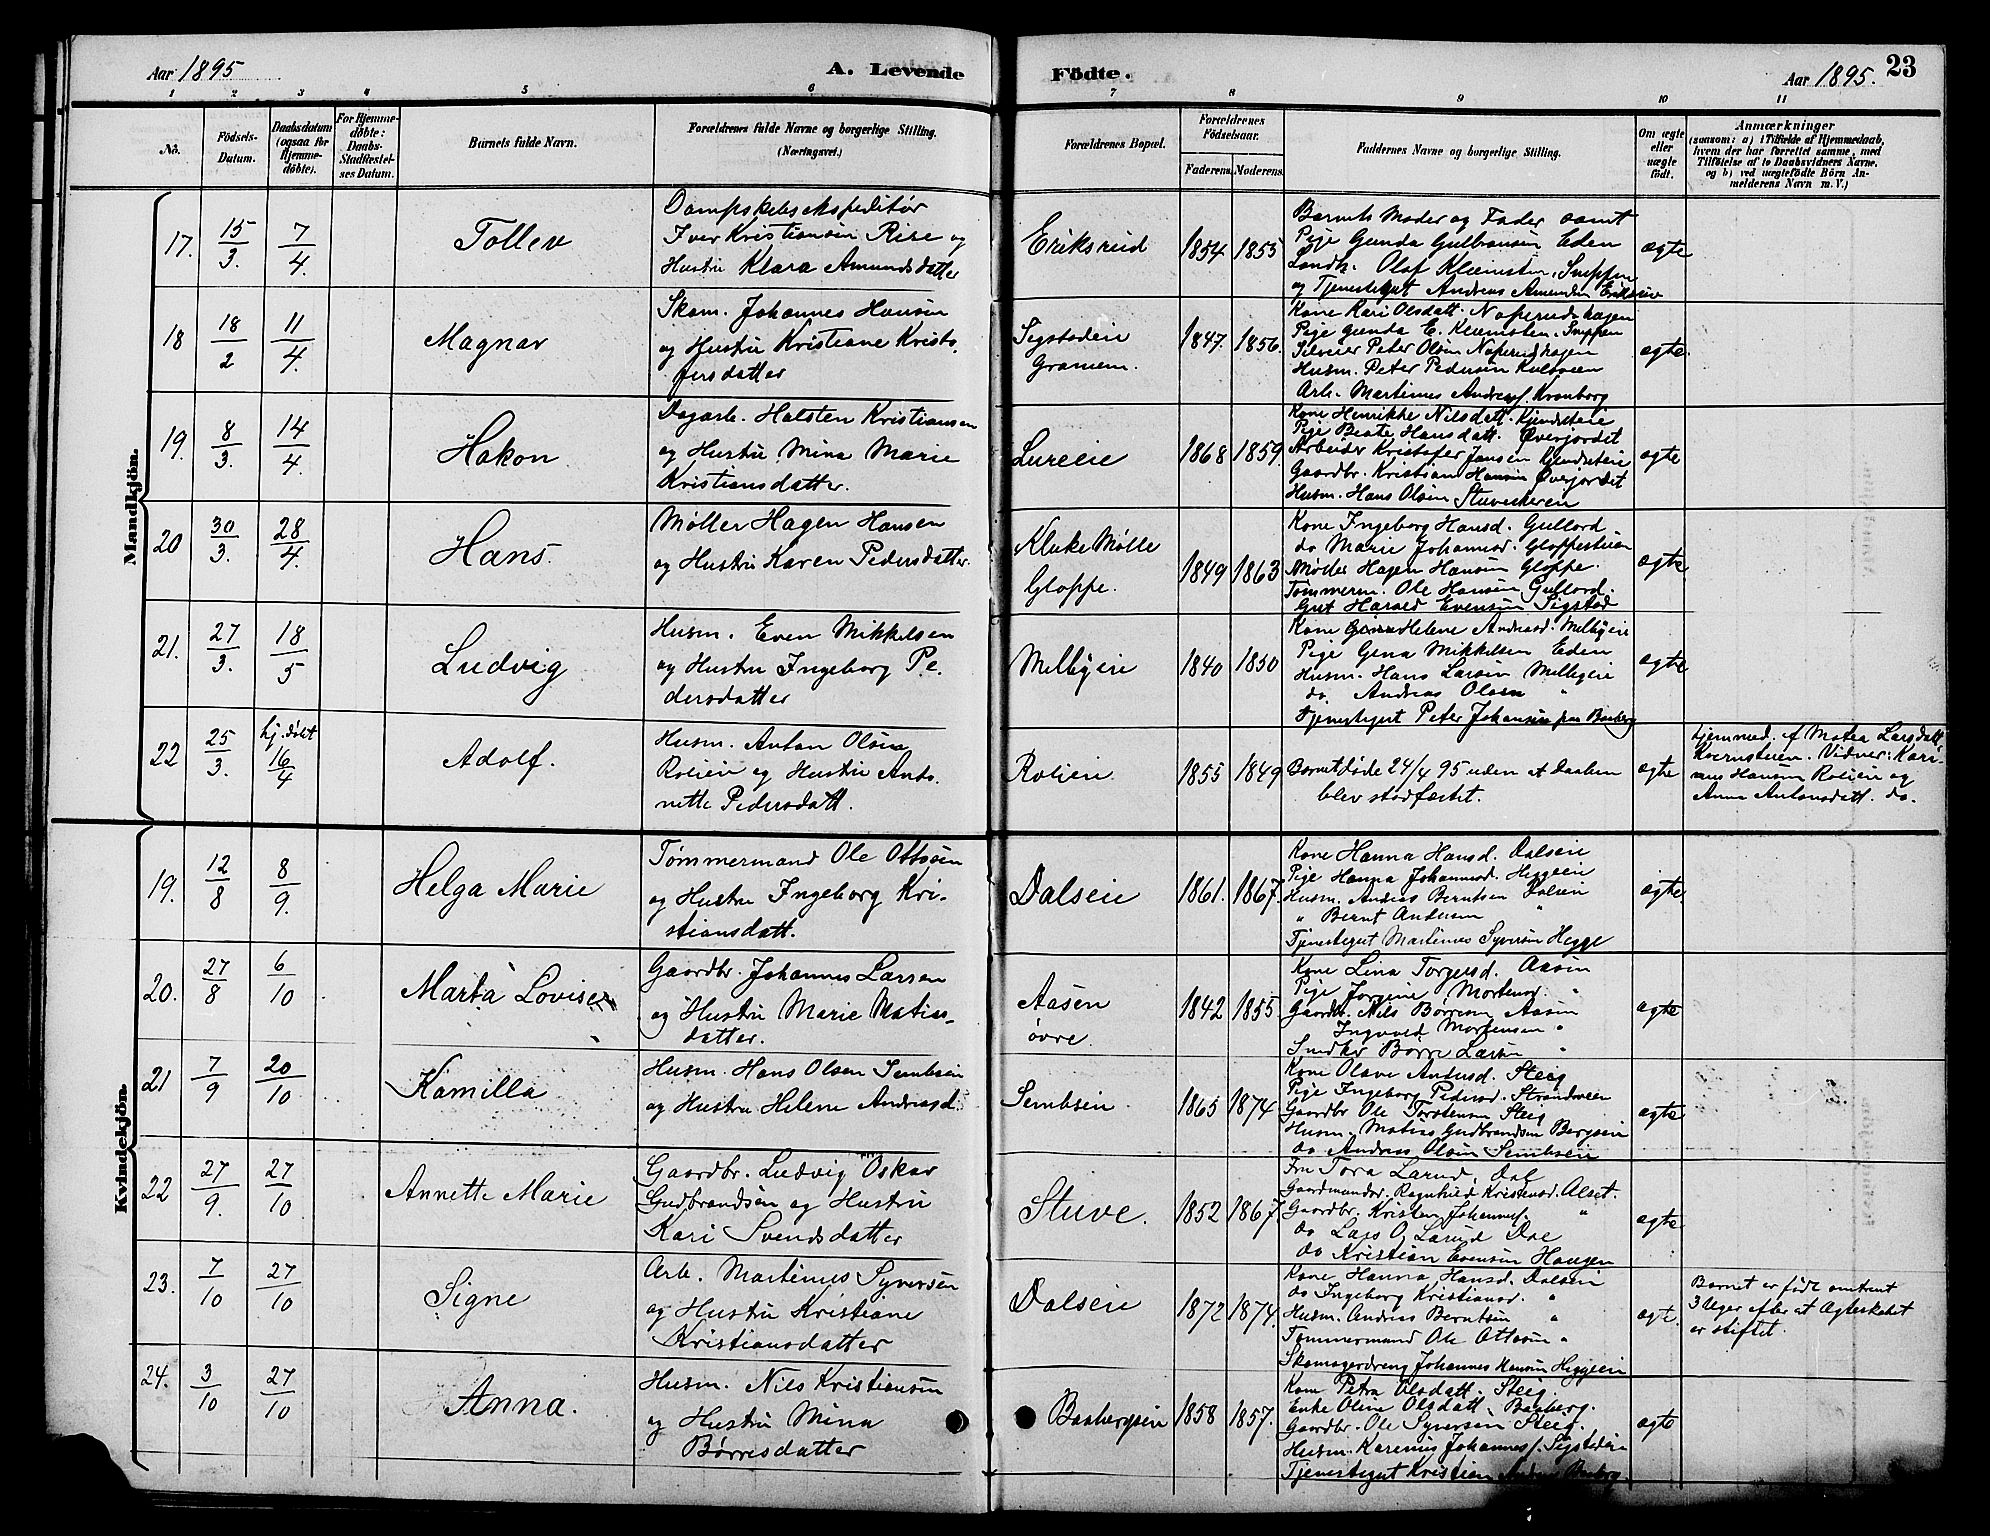 Aar 1895
A. Levende
Fødte.
Aar 1895.
23
1 2 3 4 5 6 7 8 9 10 11
No.
Födsels-
Datum.
Daabsdatum
(ogsaa for
Hjemme-
döbte).
For Hjemme-
döbte:
Daabs-
Stadfæstel-
ses Datum.
Barnets fulde Navn.
Forældrenes fulde Navne og borgerlige Stilling.
(Næringsvei.)
Forældrenes Bopæl.
Forældrenes
Födselsaar.
Faderens. Moderens.
Faddernes Navne og borgerlige Stilling.
Om ægte
eller
uægte
födt.
Anmærkninger
(saasom: a) i Tilfælde af Hjemmedaab,
hvem der har forrettet samme, med
Tilföielse af to Daabsvidners Navne,
og b) ved uægtefödte Börn An-
melderens Navn m. V.)
Mandkjön.
17. 15/3. 7/4
Tollev
Dampskibsekspeditør
Iver Kristiansen Rise og
Hustru Klara Amundsdatter
Eriksreid
1854 1855
Barnets Moder og Fader samt
Pige Gunda Gulbransen Eden
Landh. Olaf Klemetsen, Snippen
og Tjenestegut Andreas Amundsen
ægte
18 18/2 11/4.
Magnar
Skom. Johannes Hansen
og Hustru Kristiane Kristo-
fersdatter
Sigstadeie
Gramem.
1847. 1856.
Kone Kari Olsdatt. Naperudshagen
Pige Gunda E. Klemetsen. Snippen
Peter Olsen Naperudhagen
Husm. Peter Pedersen
Arb. Martinus Andreas. Kronborg
ægte.
19. 8/3. 14/4
Hakon
Dagarb. Halsten Kristiansen
og Hustru Mina Marie
Kristiansdatter.
Lureeie
1868 1859.
Kone Henrikke Nilsdatt. Kjendseteie
Pige Beate Hansdatt. Øverjordet
Arbeider Kristofer Jansen Kjendseteie
Gaardbr. Kristian Hansen Øverjordet
Husm. Hans Olsen Stuveskeren
ægte
20 30/3. 28/4.
Hans.
Møller Hagen Hansen
og Hustru Karen Pedersdatter.
Kluke Mølle
Gloppe.
1849 1863
Kone Ingeborg Hansd. Gullord
do Marie Johannesd. Gloppestuen
Møller Hagen Hansen Gloppe.
Tømmerm. Ole Hansen Gullord.
Gut Harald Evensen Sigstad
ægte
21. 27/3. 18/5
Ludvig
Husm. Even Mikkelsen
og Hustru Ingeborg Pe-
dersdatter
Melbyeie
1840 1850
Kone Helene Andreasd. Melbyeie
Pige Gina Mikkelsen Eden
Husm. Hans Larsen Melbyeie
do Andreas Olsen "
Tjenestegut Peter Johansen paa Baaberg
ægte
22 25/3. hj. døbt
16/4
Adolf.
Husm. Anton Olsen
Rolieie og Hustru Anto-
nette Pedersdatt.
Rolieie
1855 1849
Barnet døde 24/4 95 uden at Daaben
blev stadfæstet.
ægte
hjemmed. af Matea Larsdatt.
Kvernstuen. Vidner: Kari-
nus Hansen Rolieie og
Anna Antonsdatt. do.
Kvindekjön.
19. 12/8 8/9.
Helga Marie
Tømmermand Ole Ottosen
og Hustru Ingeborg Kri-
stiansdatt.
Dalseie
1861. 1867.
Kone Hanna Hansd. Dalseie
Pige Hanna Johannesd. Heggeeie
Husm. Andreas Berntsen Dalseie
" Bernt Andersen "
Tjenestegut Martinus Syversen Hegge
ægte.
20. 27/8 6/10
Marta Lovise
Gaardbr. Johannes Larsen
og Hustru Marie Matias-
datter.
Aasen
øvre.
1842 1855
Kone Lina Torgersd. Aasen
Pige Jorgine Mortensd. "
Gaardbr. Nils Børresen Aasen
Ingvald Mortensen "
Snedker Børre Larsen "
ægte
21 7/9 20/10
Kamilla
Husm. Hans Olsen Sembseie
og Hustru Helene Andreasd.
Sembseie.
1865 1874
Kone Olave Andersd. Steig
Pige Ingeborg Pedersd. Strandveen
Gaardbr Ole Torstensen Steig
Husm. Matias Gudbrandsen Bergseie
do Andreas Olsen Sembseie
ægte
22 27/9. 27/10
Annette Marie
Gaardbr. Ludvig Oskar
Gudbrandsen og Hustru
Kari Svendsdatter
Stuve.
1852 1867
Fru Tora Larud. Dal
Gaardmandsd. Ragnhild Kristensd. Alset.
Gaardbr. Kristen Johannes. "
do Lars O. Larud Dal
do Kristian Evensen Haugen
ægte
23. 7/10 27/10
Signe
Arb. Martinus Syversen
og Hustru Kristiane
Kristiansdatter
Dalseie
1872 1874.
Kone Hanna Hansd. Dalseie
do Ingeborg Kristiansd. "
Husm. Andreas Berntsen "
Tømmermand Ole Ottosen "
Skomagerdreng Johannes Hansen Heggeeie
ægte.
Barnet er født omtrent
3 Uger efter at Ægteskabet
er stiftet.
24. 3/10 27/10
Anna.
Husm. Nils Kristiansen
og Hustru Mina
Børresdatter
Baabergseie
1858 1857.
Kone Petra Olsdatt. Steig.
Enke Oline Olsdatt. Baaberg.
Gaardbr. Ole Syversen Steig.
Husm. Karenus Johannes. Sigstadeie
Tjenestegut Kristian Baaberg.
ægte